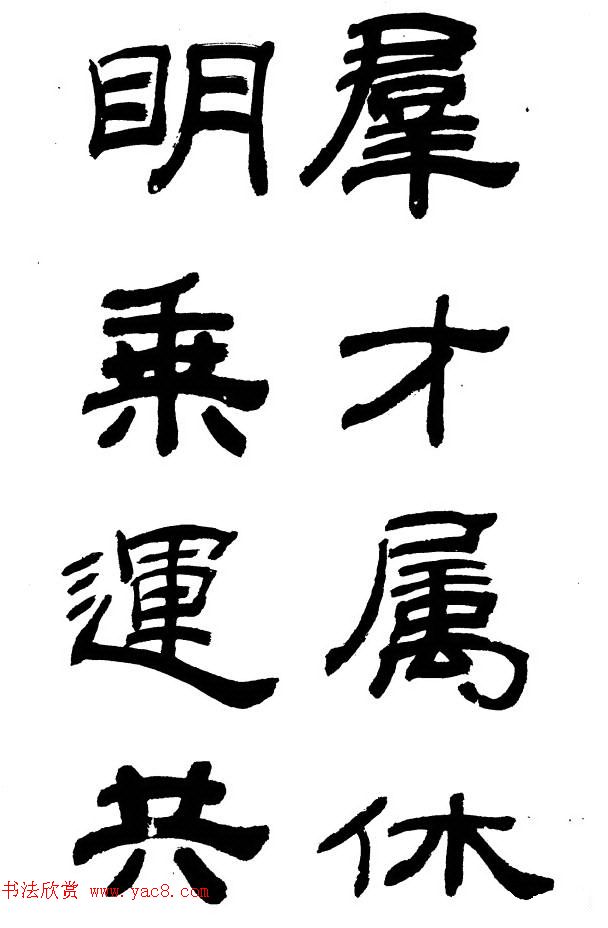 羣才属休
明乗運共
书法欣赏 www.yac8.com